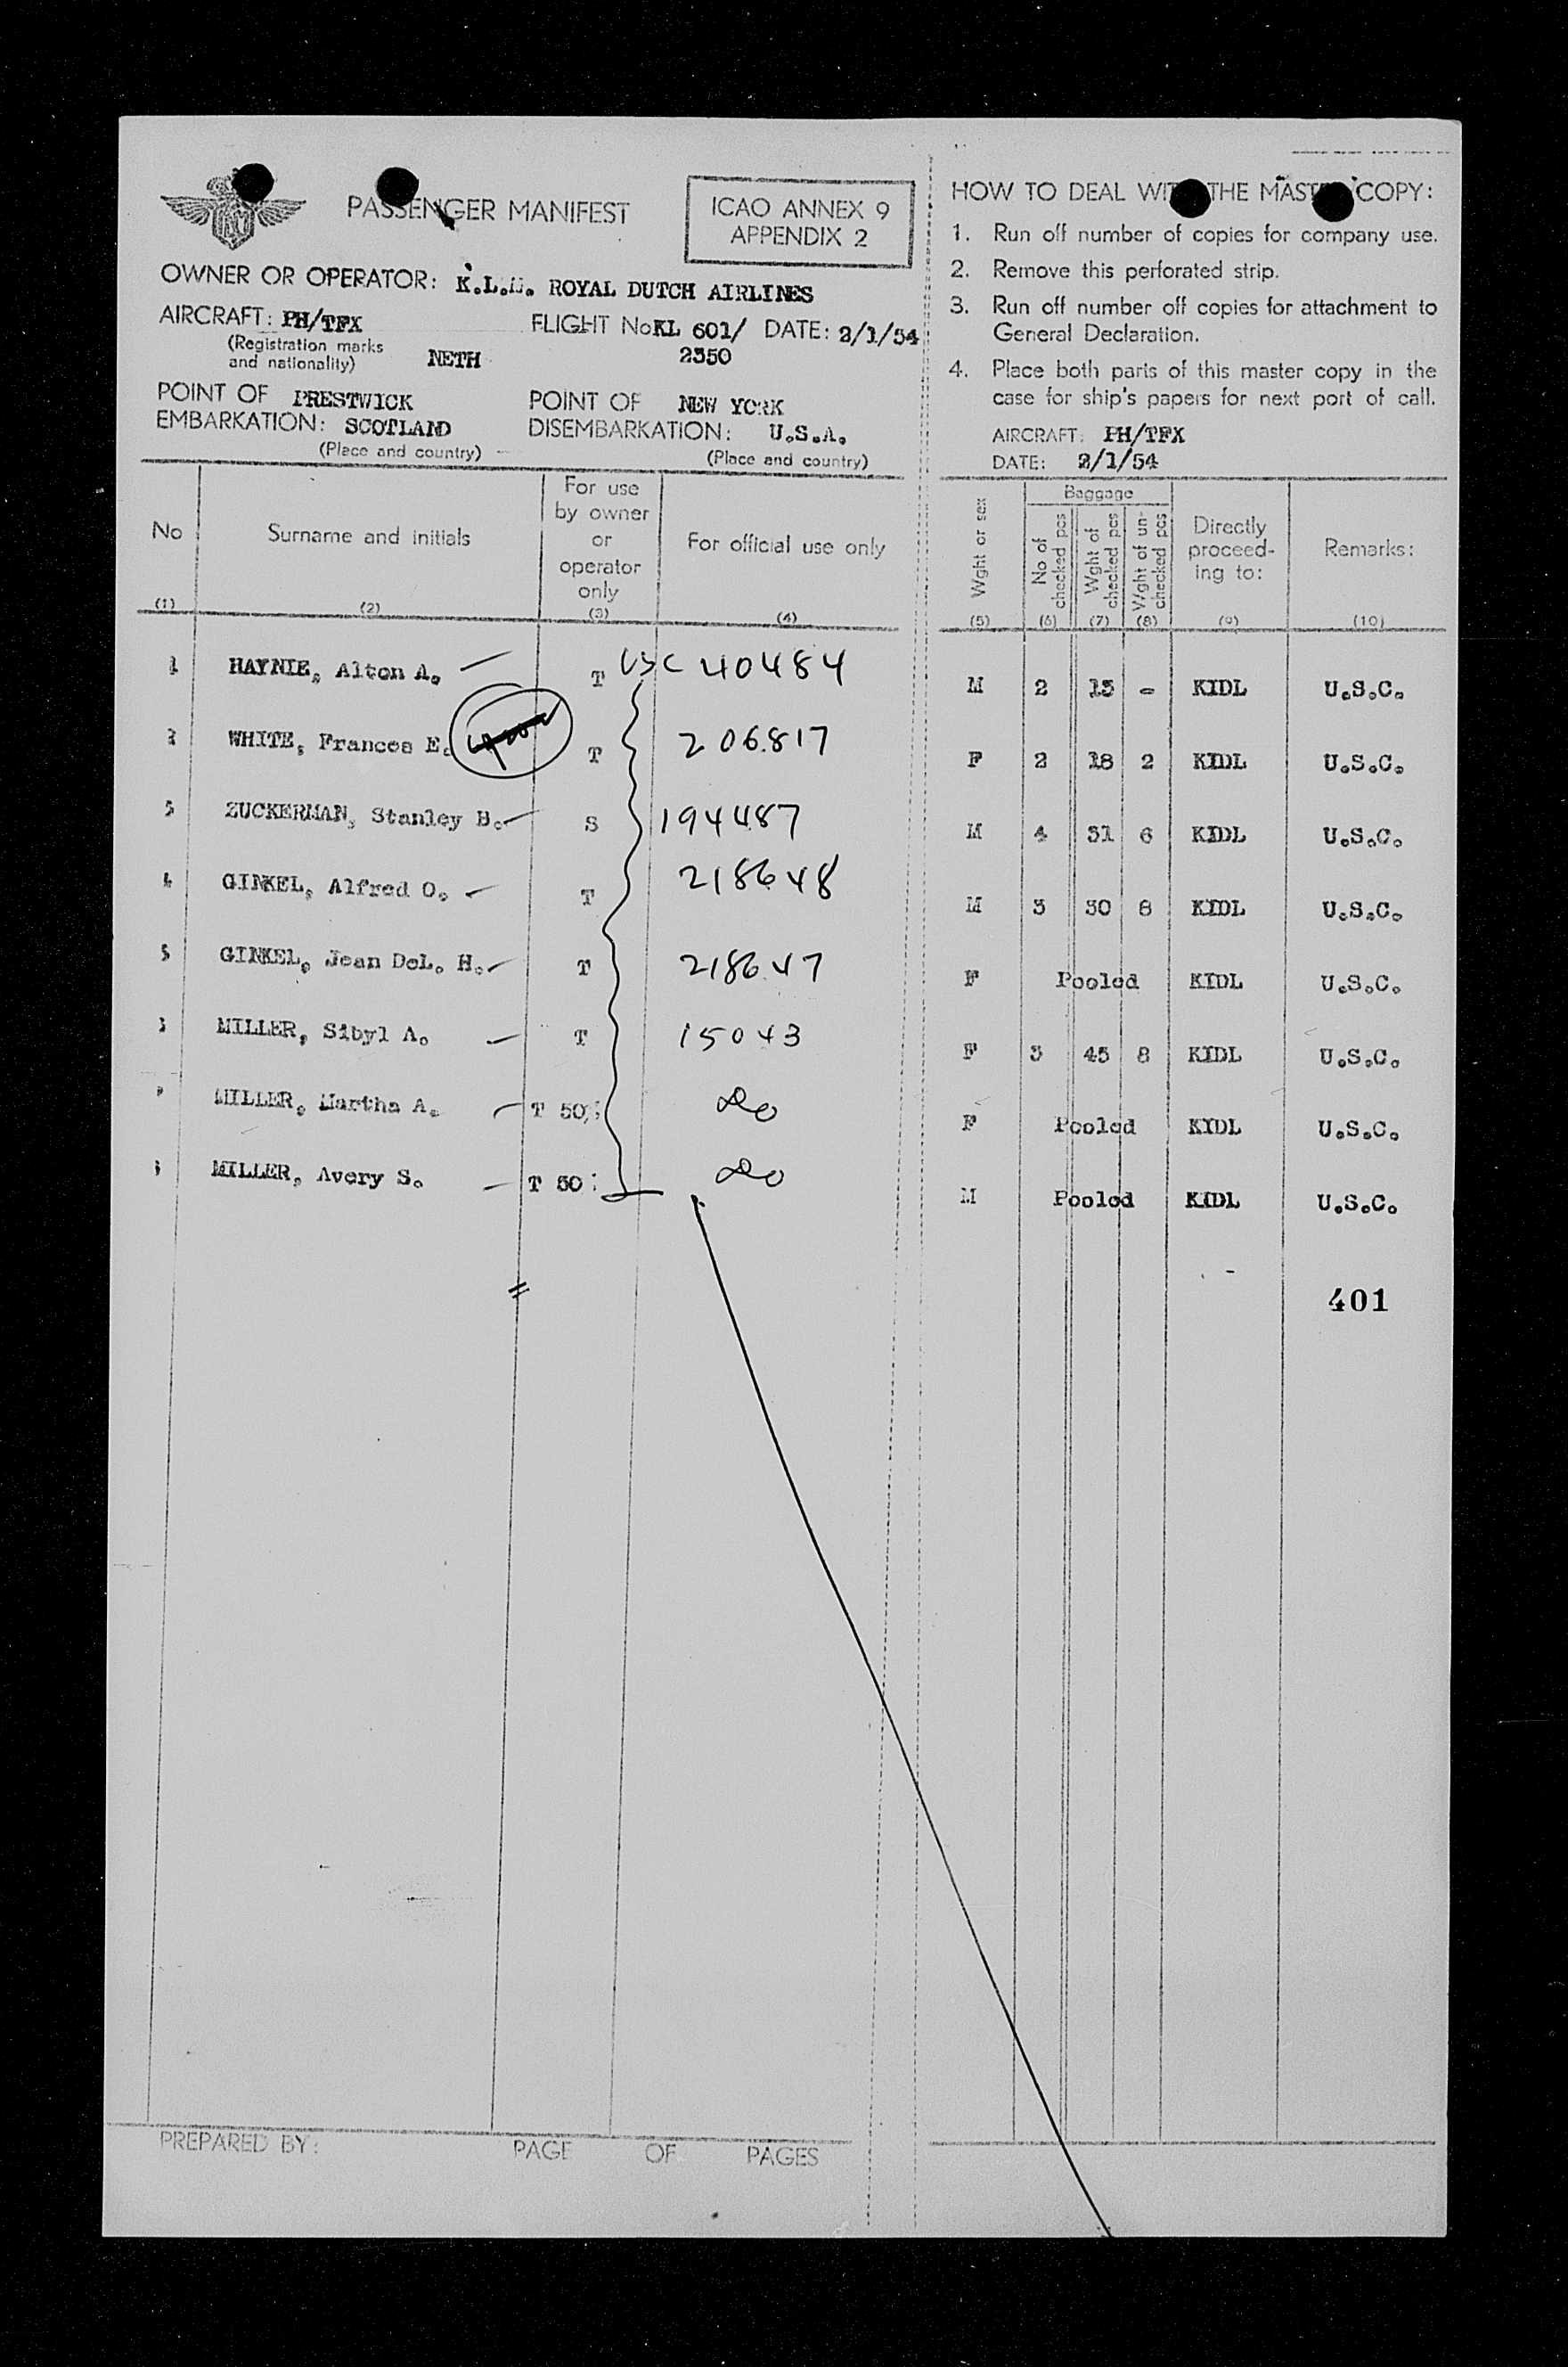 PASSENGER MANIFEST
ICAO ANNEX 9
APPENDIX 2
OWNER OR OPERATOR: K.L.M. ROYAL DUTCH AIRLINES
AIRCRAFT: PH/TFX
(Registration marks
and nationality) NETH
FLIGHT No KL 601/ DATE: 2/1/54
2350
POINT OF PRESTWICK
EMBARKATION: SCOTLAND
(Place and country)
POINT OF NEW YORK
DISEMBARKATION: U.S.A.
(Place and country)
HOW TO DEAL WITH THE MASTER COPY:
1. Run off number of copies for company use.
2. Remove this perforated strip.
3. Run off number off copies for attachment to
General Declaration.
4. Place both parts of this master copy in the
case for ship's papers for next port of call.
AIRCRAFT: PH/TFX
DATE: 2/1/54
No
(1)
Surname and initials
(2)
For use
by owner
or
operator
only
(3)
For official use only
(4)
Wght or sex
(5)
Baggage
No of
checked pcs
(6)
Wght of
checked pcs
(7)
Wght of un-
checked pcs
(8)
Directly
proceed-
ing to:
(9)
Remarks:
(10)
1 HAYNIE, Alton A. T USC 40484 M 2 15 - KIDL U.S.C.
2 WHITE, Frances E. T 206817 F 2 18 2 KIDL U.S.C.
3 ZUCKERMAN, Stanley B. S 194487 M 4 31 6 KIDL U.S.C.
4 GINKEL, Alfred O. T 218648 M 3 30 8 KIDL U.S.C.
5 GINKEL, Jean DeL. H. T 218647 F Pooled KIDL U.S.C.
MILLER, Sibyl A. T 15043 F 3 45 8 KIDL U.S.C.
MILLER, Martha A. T 50% do F Pooled KIDL U.S.C.
MILLER, Avery S. T 50 do M Pooled KIDL U.S.C.
401
PREPARED BY: PAGE OF PAGES